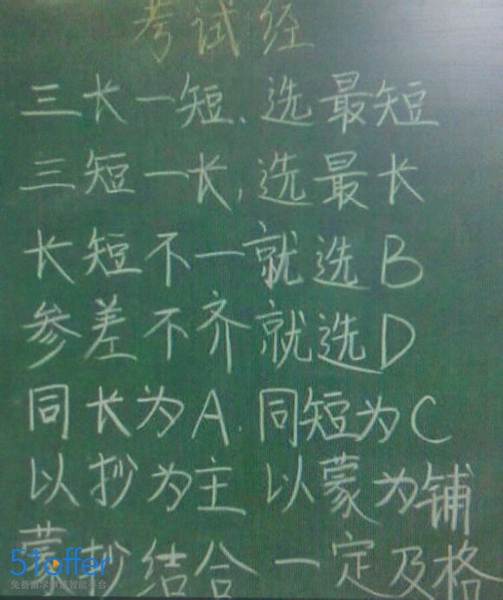 考试经
三长一短、选最短
三短一长,选最长
长短不一就选B
参差不齐就选D
同长为A.同短为C
以抄为主 以蒙为铺
蒙抄结合 一定及格
51offer
免费留学申请智能平台